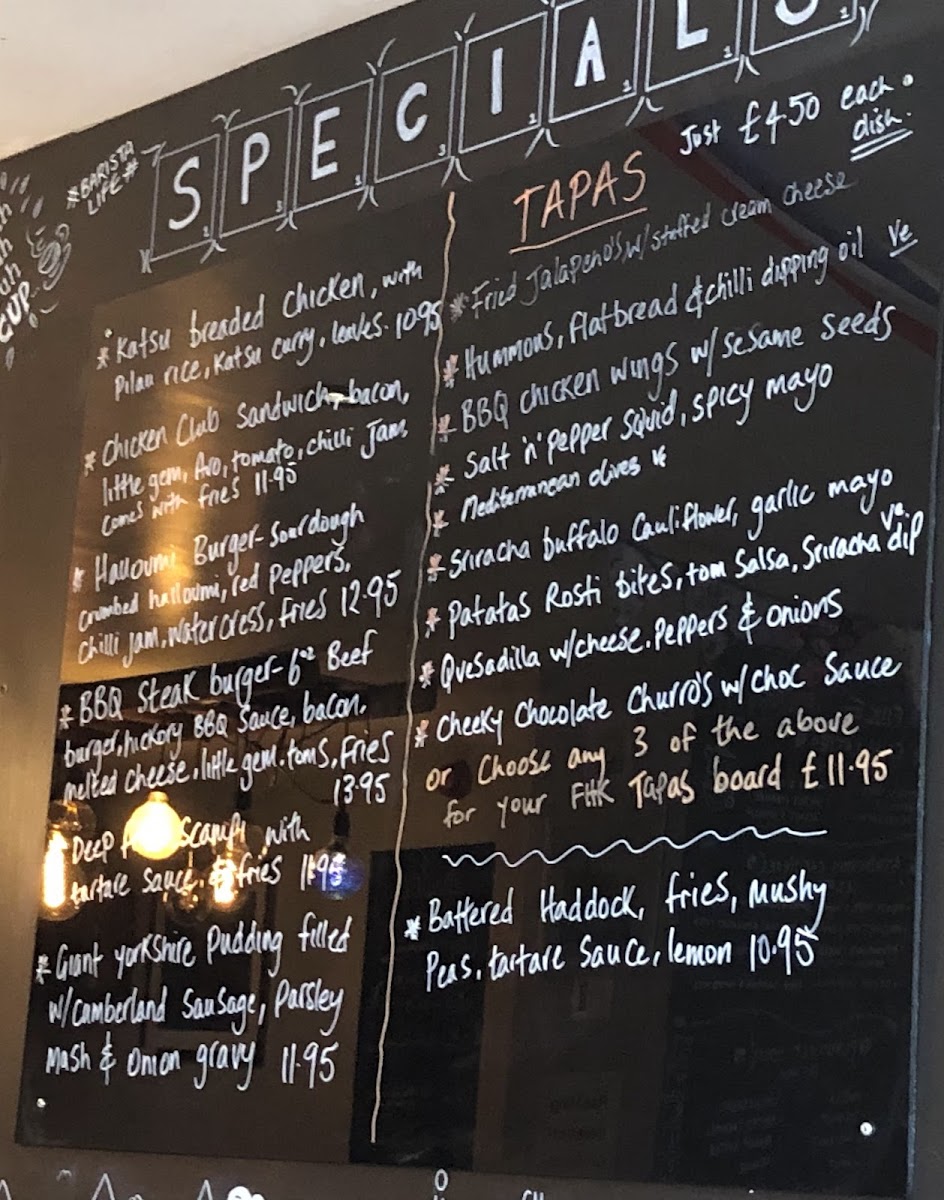 SPECIALS
*BARISTA
LIFE*
CUP
*Katsu breaded chicken, with
Pilau rice, Katsu curry, leaks. 10.95
*Chicken Club Sandwich, bacon,
little gem, Avo, tomato, chilli Jam,
comes with fries 11.95
*Halloumi Burger - Sourdough
crumbed halloumi, red peppers,
chilli jam, watercress, fries 12.95
*BBQ Steak burger - 6oz Beef
burger, hickory BBQ sauce, bacon,
melted cheese, little gem, toms, fries
13.95
*Deep Scampi with
tartare sauce, & fries
*Giant Yorkshire Pudding filled
w/Cumberland Sausage, Parsley
Mash & Onion gravy 11.95
TAPAS
Just £4.50 each
dish.
*Fried Jalapeno's, w/ stuffed cream cheese
*Hummous, flatbread & chilli dipping oil ve
*BBQ chicken wings w/ sesame seeds
*Salt 'n' pepper squid, spicy mayo
*Mediterranean olives ve
*Sriracha buffalo cauliflower, garlic mayo
*Patatas Rosti bites, tom salsa, Sriracha dip ve.
*Quesadilla w/cheese, Peppers & onions
*Cheeky Chocolate Churro's w/choc Sauce
or choose any 3 of the above
for your FHK Tapas board £11.95
*Battered Haddock, fries, Mushy
Peas, tartare sauce, lemon 10.95